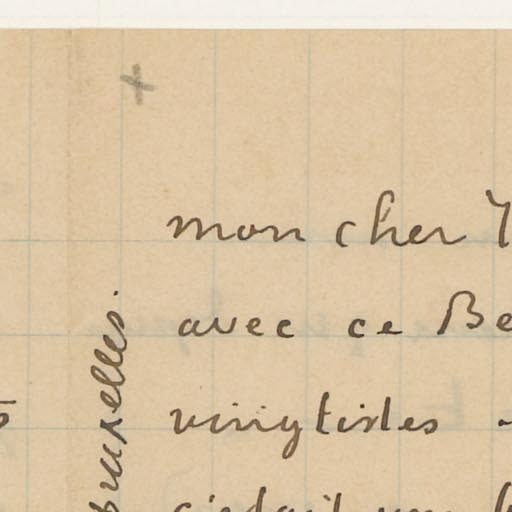 mon cher
avec ce Be
vingtistes -
bruxelles.